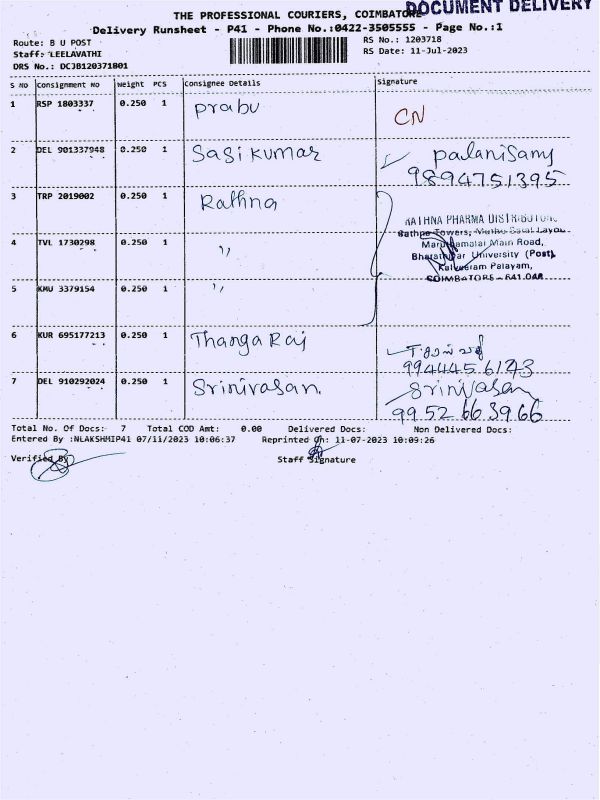 DOCUMENT DELIVERY
THE PROFESSIONAL COURIERS, COIMBATORE
Delivery Runsheet - P41 - Phone No.:0422-3505555 - Page No.:1
Route: B U POST
RS No.: 1203718
Staff: LEELAVATHI
RS Date: 11-Jul-2023
DRS No.: DCJB120371801
S NO Consignment No Weight PCS Consignee Details Signature
1 RSP 1803337 0.250 1 Prabu CN
2 DEL 901337948 0.250 1 Sasi kumar Palanisamy
9894751395
3 TRP 2019002 0.250 1 Rathna
RATHNA PHARMA DISTRIBUTORS
4 TVL 1730298 0.250 1 ,,
Marudhamalai Main Road,
Bharathiyar University (Post),
Kalveeram Palayam,
COIMBATORE - 641 046
5 KMU 3379154 0.250 1 ,,
6 KUR 695177213 0.250 1 Thanga Raj
994445 6143
7 DEL 910292024 0.250 1 Srinivasan. Srinivasan
99 52 66 39 66
Total No. Of Docs: 7 Total COD Amt: 0.00 Delivered Docs: Non Delivered Docs:
Entered By :NLAKSHMIP41 07/11/2023 10:06:37 Reprinted On: 11-07-2023 10:09:26
Verified By Staff Signature